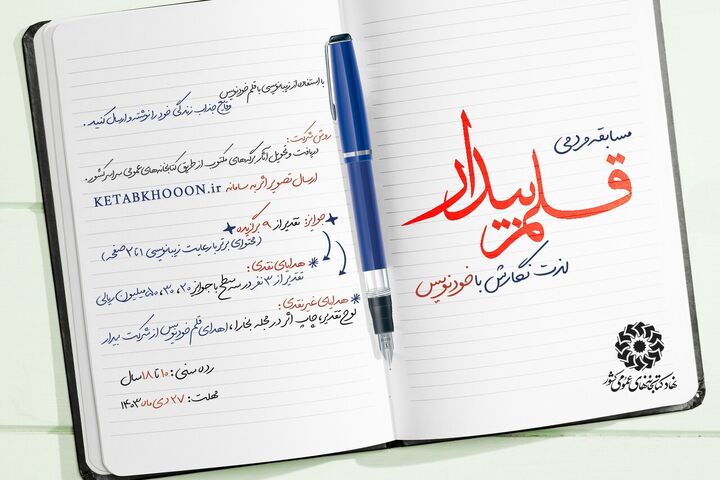 مسابقه مردمی
قلم بیدار
لذت نگارش با خودنویس
نهاد کتابخانه‌های عمومی کشور
با استفاده از زیبانویسی با قلم خودنویس
وقایع جذاب زندگی خود را نوشته و ارسال کنید.
روش شرکت:
دریافت و تحویل آثار برگه‌های مکتوب از طریق کتابخانه‌های عمومی سراسر کشور.
ارسال تصویر اثر به سامانه KETABKHOOON.ir
جوایز: تقدیر از ۹ برگزیده
(محتوای برتر با رعایت زیبانویسی ۱ تا ۲ صفحه)
هدایای نقدی:
تقدیر از ۳ نفر در سه سطح با جوایز ۲۰، ۳۰، ۵۰ میلیون ریالی
هدایای غیر نقدی:
لوح تقدیر، چاپ اثر در مجله بخارا، اهدای قلم خودنویس از شرکت بیدار
رده سنی: ۱۰ تا ۱۸ سال
مهلت: ۲۷ دی ماه ۱۴۰۳